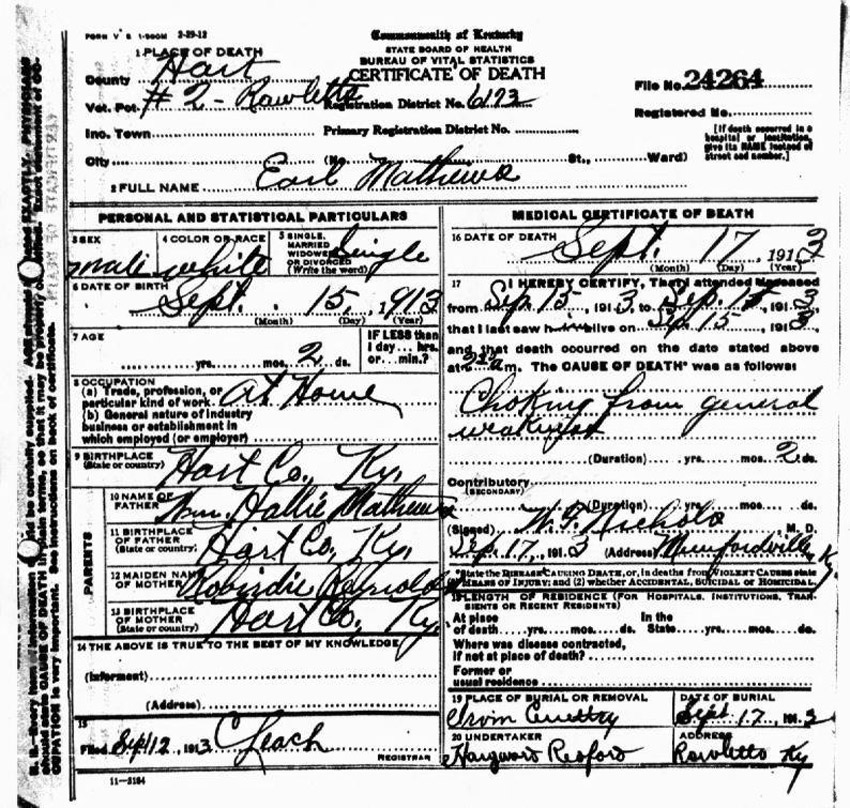 FORM V S 1-500M 2-29-12
Commonwealth of Kentucky
STATE BOARD OF HEALTH
BUREAU OF VITAL STATISTICS
CERTIFICATE OF DEATH
File No. 24264
Registered No.
[If death occurred in a
hospital or institution,
give its NAME instead of
street and number.]
1 PLACE OF DEATH
County Hart
Vot. Pct. #2 - Rowletts Registration District No. 6193
Inc. Town Primary Registration District No.
City (No. St., Ward)
2 FULL NAME Earl Mathews
PERSONAL AND STATISTICAL PARTICULARS
3 SEX male
4 COLOR OR RACE white
5 SINGLE, MARRIED WIDOWED OR DIVORCED (Write the word) Single
6 DATE OF BIRTH
Sept. 15, 1913
(Month) (Day) (Year)
7 AGE
yrs. mos. 2 ds.
IF LESS than
1 day... hrs.
or... min.?
8 OCCUPATION
(a) Trade, profession, or
particular kind of work At Home
(b) General nature of industry
business or establishment in
which employed (or employer)
9 BIRTHPLACE
(State or country) Hart Co., Ky.
PARENTS
10 NAME OF
FATHER Wm. Hallie Mathews
11 BIRTHPLACE
OF FATHER
(State or country) Hart Co, Ky.
12 MAIDEN NAME
OF MOTHER Robirdie Reynolds
13 BIRTHPLACE
OF MOTHER
(State or country) Hart Co, Ky.
14 THE ABOVE IS TRUE TO THE BEST OF MY KNOWLEDGE
(Informant)
(Address)
15
Filed Sept 12, 1913 C Leach
REGISTRAR
11-5184
MEDICAL CERTIFICATE OF DEATH
16 DATE OF DEATH
Sept. 17, 1913
(Month) (Day) (Year)
17 I HEREBY CERTIFY, That I attended deceased
from Sep. 15, 1913, to Sep. 15, 1913,
that I last saw h alive on Sep. 15, 1913,
and that death occurred on the date stated above
at m. The CAUSE OF DEATH* was as follows:
Choking from general
weakness
(Duration) yrs. mos. 2 ds.
Contributory
(SECONDARY)
(Duration) yrs. mos. ds.
(Signed) W. F. Nichols, M. D.
Sep. 17, 1913 (Address) Munfordville Ky.
*State the DISEASE CAUSING DEATH, or, in deaths from VIOLENT CAUSES state
MEANS OF INJURY; and (2) whether ACCIDENTAL, SUICIDAL OR HOMICIDAL.
18 LENGTH OF RESIDENCE (FOR HOSPITALS, INSTITUTIONS, TRAN-
SIENTS OR RECENT RESIDENTS)
At place In the
of death yrs. mos. ds. State yrs. mos. ds.
Where was disease contracted,
if not at place of death?
Former or
usual residence
19 PLACE OF BURIAL OR REMOVAL
Irvin Cemetery
DATE OF BURIAL
Sept 17, 1913
20 UNDERTAKER
ADDRESS
Rowletts Ky